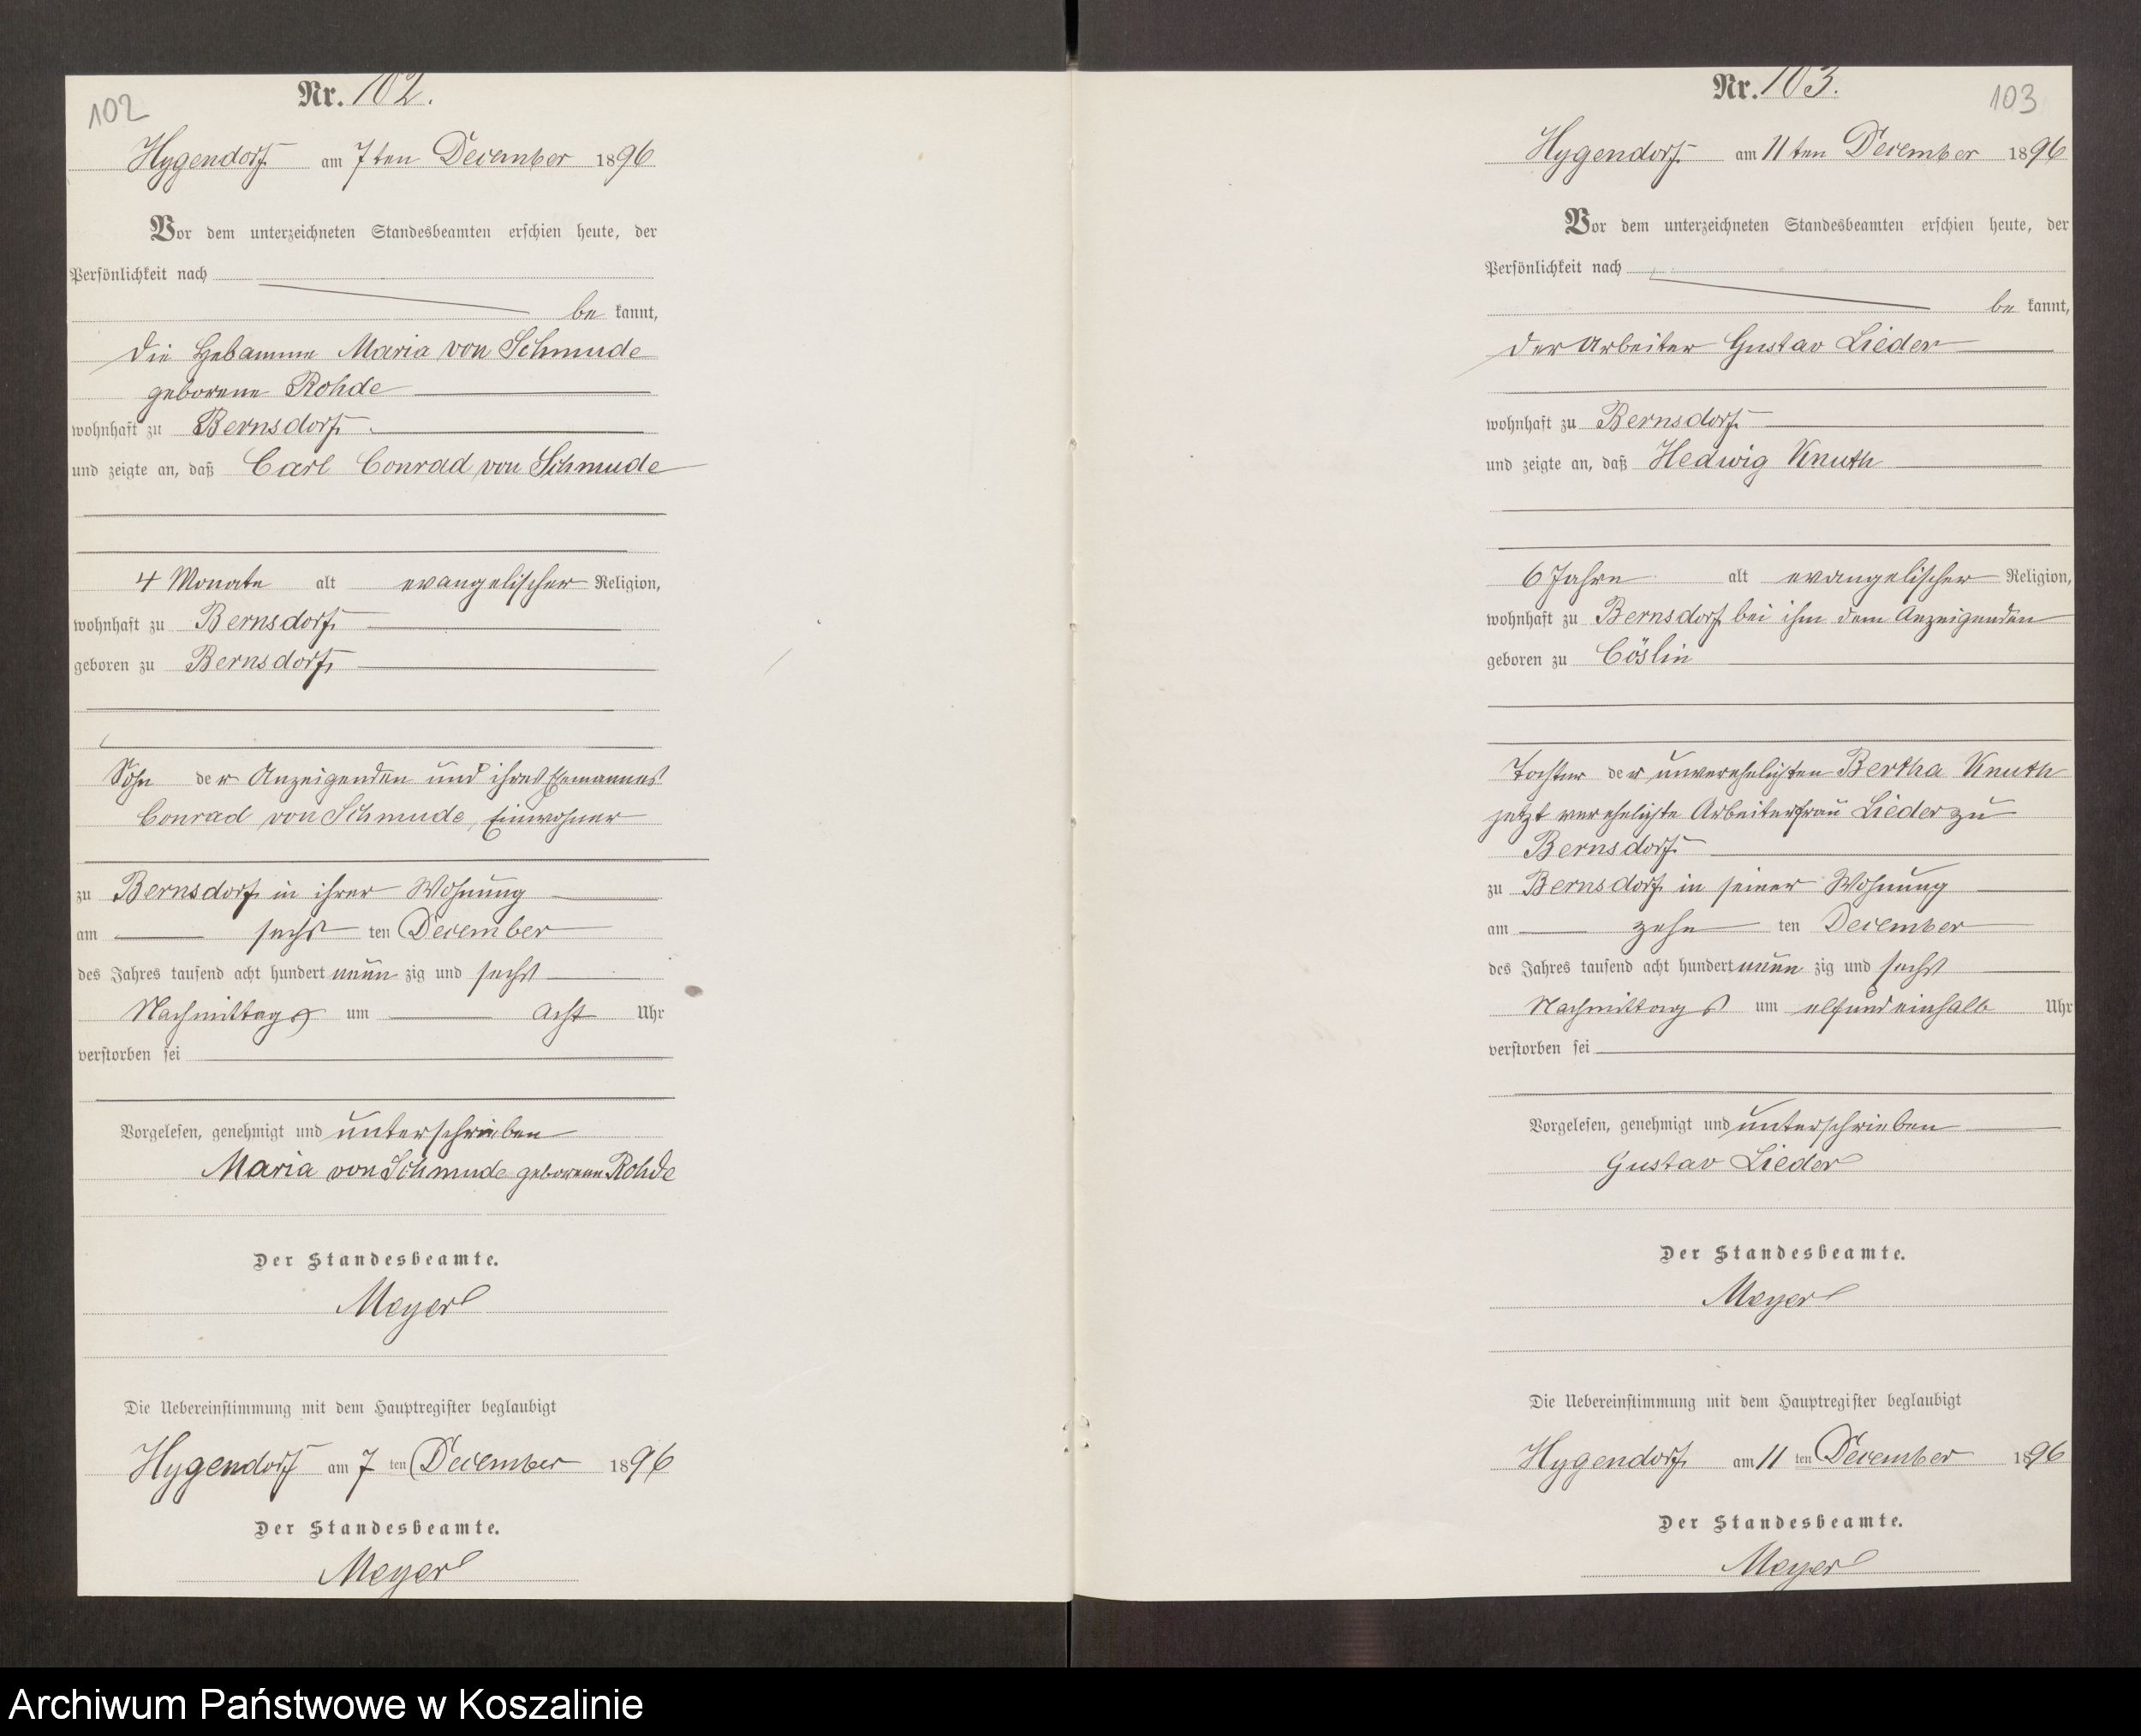 102
Nr. 102.
Hygendorf am 7ten December 1896
Vor dem unterzeichneten Standesbeamten erschien heute, der
Persönlichkeit nach
be kannt,
die Hebamme Maria von Schmude
geborene Rohde
wohnhaft zu Bernsdorf
und zeigte an, daß Carl Conrad von Schmude
4 Monate alt evangelischer Religion,
wohnhaft zu Bernsdorf
geboren zu Bernsdorf
Sohn der Anzeigenden und ihres Ehemannes
Conrad von Schmude, Einwohner
zu Bernsdorf in ihrer Wohnung
am sechs ten December
des Jahres tausend acht hundert neun zig und sechs
Nachmittags um acht Uhr
verstorben sei
Vorgelesen, genehmigt und unterschrieben
Maria von Schmude geborene Rohde
Der Standesbeamte.
Meyer
Die Uebereinstimmung mit dem Hauptregister beglaubigt
Hygendorf am 7 ten December 1896
Der Standesbeamte.
Meyer
Nr. 103.
103
Hygendorf am 11ten December 1896
Vor dem unterzeichneten Standesbeamten erschien heute, der
Persönlichkeit nach
be kannt,
der Arbeiter Gustav Lieder
wohnhaft zu Bernsdorf
und zeigte an, daß Hedwig Knuth
6 Jahre alt evangelischer Religion,
wohnhaft zu Bernsdorf bei ihm dem Anzeigenden
geboren zu Cöslin
Tochter der unverehelichten Bertha Knuth
jetzt verehelichte Arbeiterfrau Lieder zu
Bernsdorf
zu Bernsdorf in seiner Wohnung
am zehn ten December
des Jahres tausend acht hundert neun zig und sechs
Nachmittags um elfundeinhalb Uhr
verstorben sei
Vorgelesen, genehmigt und unterschrieben
Gustav Lieder
Der Standesbeamte.
Meyer
Die Uebereinstimmung mit dem Hauptregister beglaubigt
Hygendorf am 11 ten December 1896
Der Standesbeamte.
Meyer
Archiwum Państwowe w Koszalinie